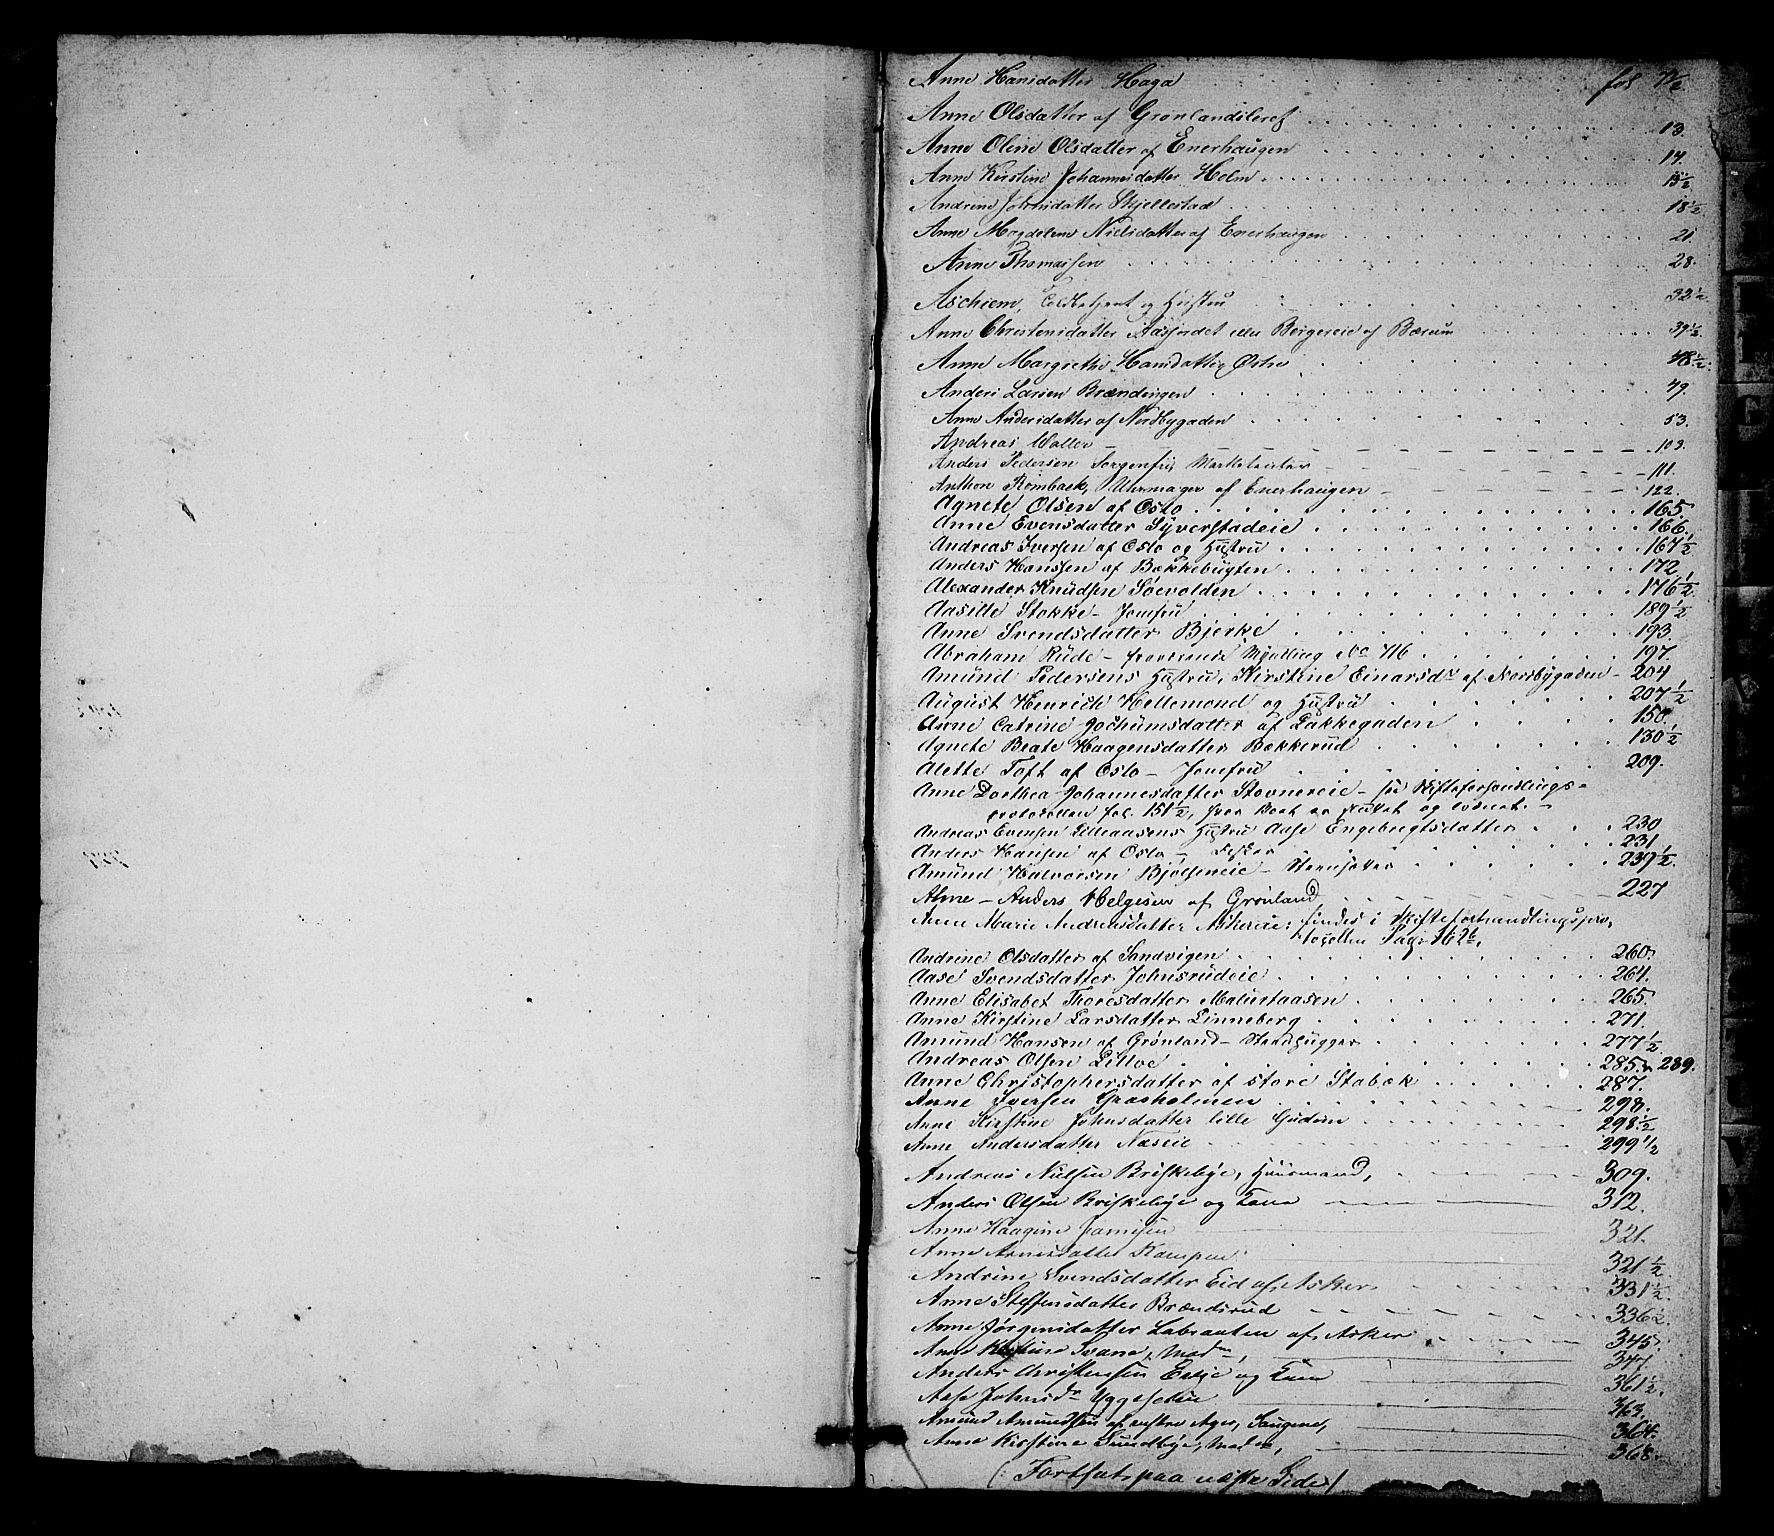 Anne Hansdatter Haga fol 7½
Anne Olsdatter af Grønlandsleret 13.
Anne Oline Olsdatter af Enerhaugen 14.
Anne Kirstine Johannesdatter Holm 15½
Andrine Johnsdatter Skjellestad 18½
Anne Magdelene Nielsdatter af Enerhaugen 21.
Anne Thomassen 28.
Aschiem, Toldbetjent og Hustru 32½
Anne Christensdatter eller Borgereie af Bærum 39½
Anne Margrethe Hansdatter Østre 48½
Anders Larsen Brændingen 49.
Anne Andersdatter af Nordbygaden 53.
Andreas Waller 103.
Anders Pedersen Sorgenfri, Marketenter 111.
Anthon Rombaek, Uhrmager af Enerhaugen 122.
Agnete Olsen af Oslo 165.
Anne Evensdatter Syverstadeie 166.
Andreas Iversen af Oslo og Hustru 167½
Anders Hanssen af Bækkebugten 172
Alexander Knudsen Soevolden 176½
Aasille Stokke - Jomfru 189½
Anne Svendsdatter Bjerke 193.
Abraham Rude - fraværende Myndling No 716 197.
Amund Pedersens Hustru, Kirstine Einarsdr af Nordbygaden - 204
August Henrich Hellemond og Hustru 207½
Anne Catrine Jochumsdatter af Lakkegaden 150.
Agnete Beate Haagensdatter Bakkerud 130½
Alette Toft af Oslo - Jomfru 209.
Anne Dorthea Johannesdatter Stovnereie - see Skifteforhandlings-
protocollen fol. 151½, hvor Boet er sluttet og
Andreas Evensen Lilleaasens Hustru Aase Engebregtsdatter 230
Anders Hansen af Oslo -, Fisker 231
Amund Halvorsen Bjølseneie - Steenhugger 237½.
Anne - Anders Helgesen af Grønland 227
Anne Marie Andreasdatter Askereie: findes i Skifteforhandlingspro-
tocollen Pag: 162b.
Andrine Olsdatter af Sandvigen 260.
Aase Svendsdatter Johnsrudeie 264.
Anne Elisabet Thoresdatter Malerhaasen 265.
Anne Kirstine Larsdatter Linneberg 271.
Amund Hansen af Grønland - Steenhugger 277½
Andreas Olsen Lilloe 285. 289.
Anne Christophersdatter af store Stabæk 287.
Anne Iversen Græsholmen 298.
Anne Kirstine Johnsdatter lille Gudem 298½
Anne Andersdatter Næseie 299½
Andreas Nilsen Briskebye, Huusmand, 309.
Anders Olsen Briskebye og Kone 312.
Anne Haagine Jamissen 321.
Anne Arnesdatter Kampen 321½
Andrine Svendsdatter Eid af Asker 331½
Anne Steffensdatter Brændsrud 336½.
Anne Jørgensdatter Labraaten af Asker 345.
Anne Kirstine Svane, Madm, 347.
Anders Christensen Eeie og Kone 361½.
Aase Johnsdr Yggeseteie 363.
Amund Amundsen af vestre Ager, Saugene, 364.
Anne Kirstine Sundbye, Madm, 368.
(: Fortsat paa næste Side :)